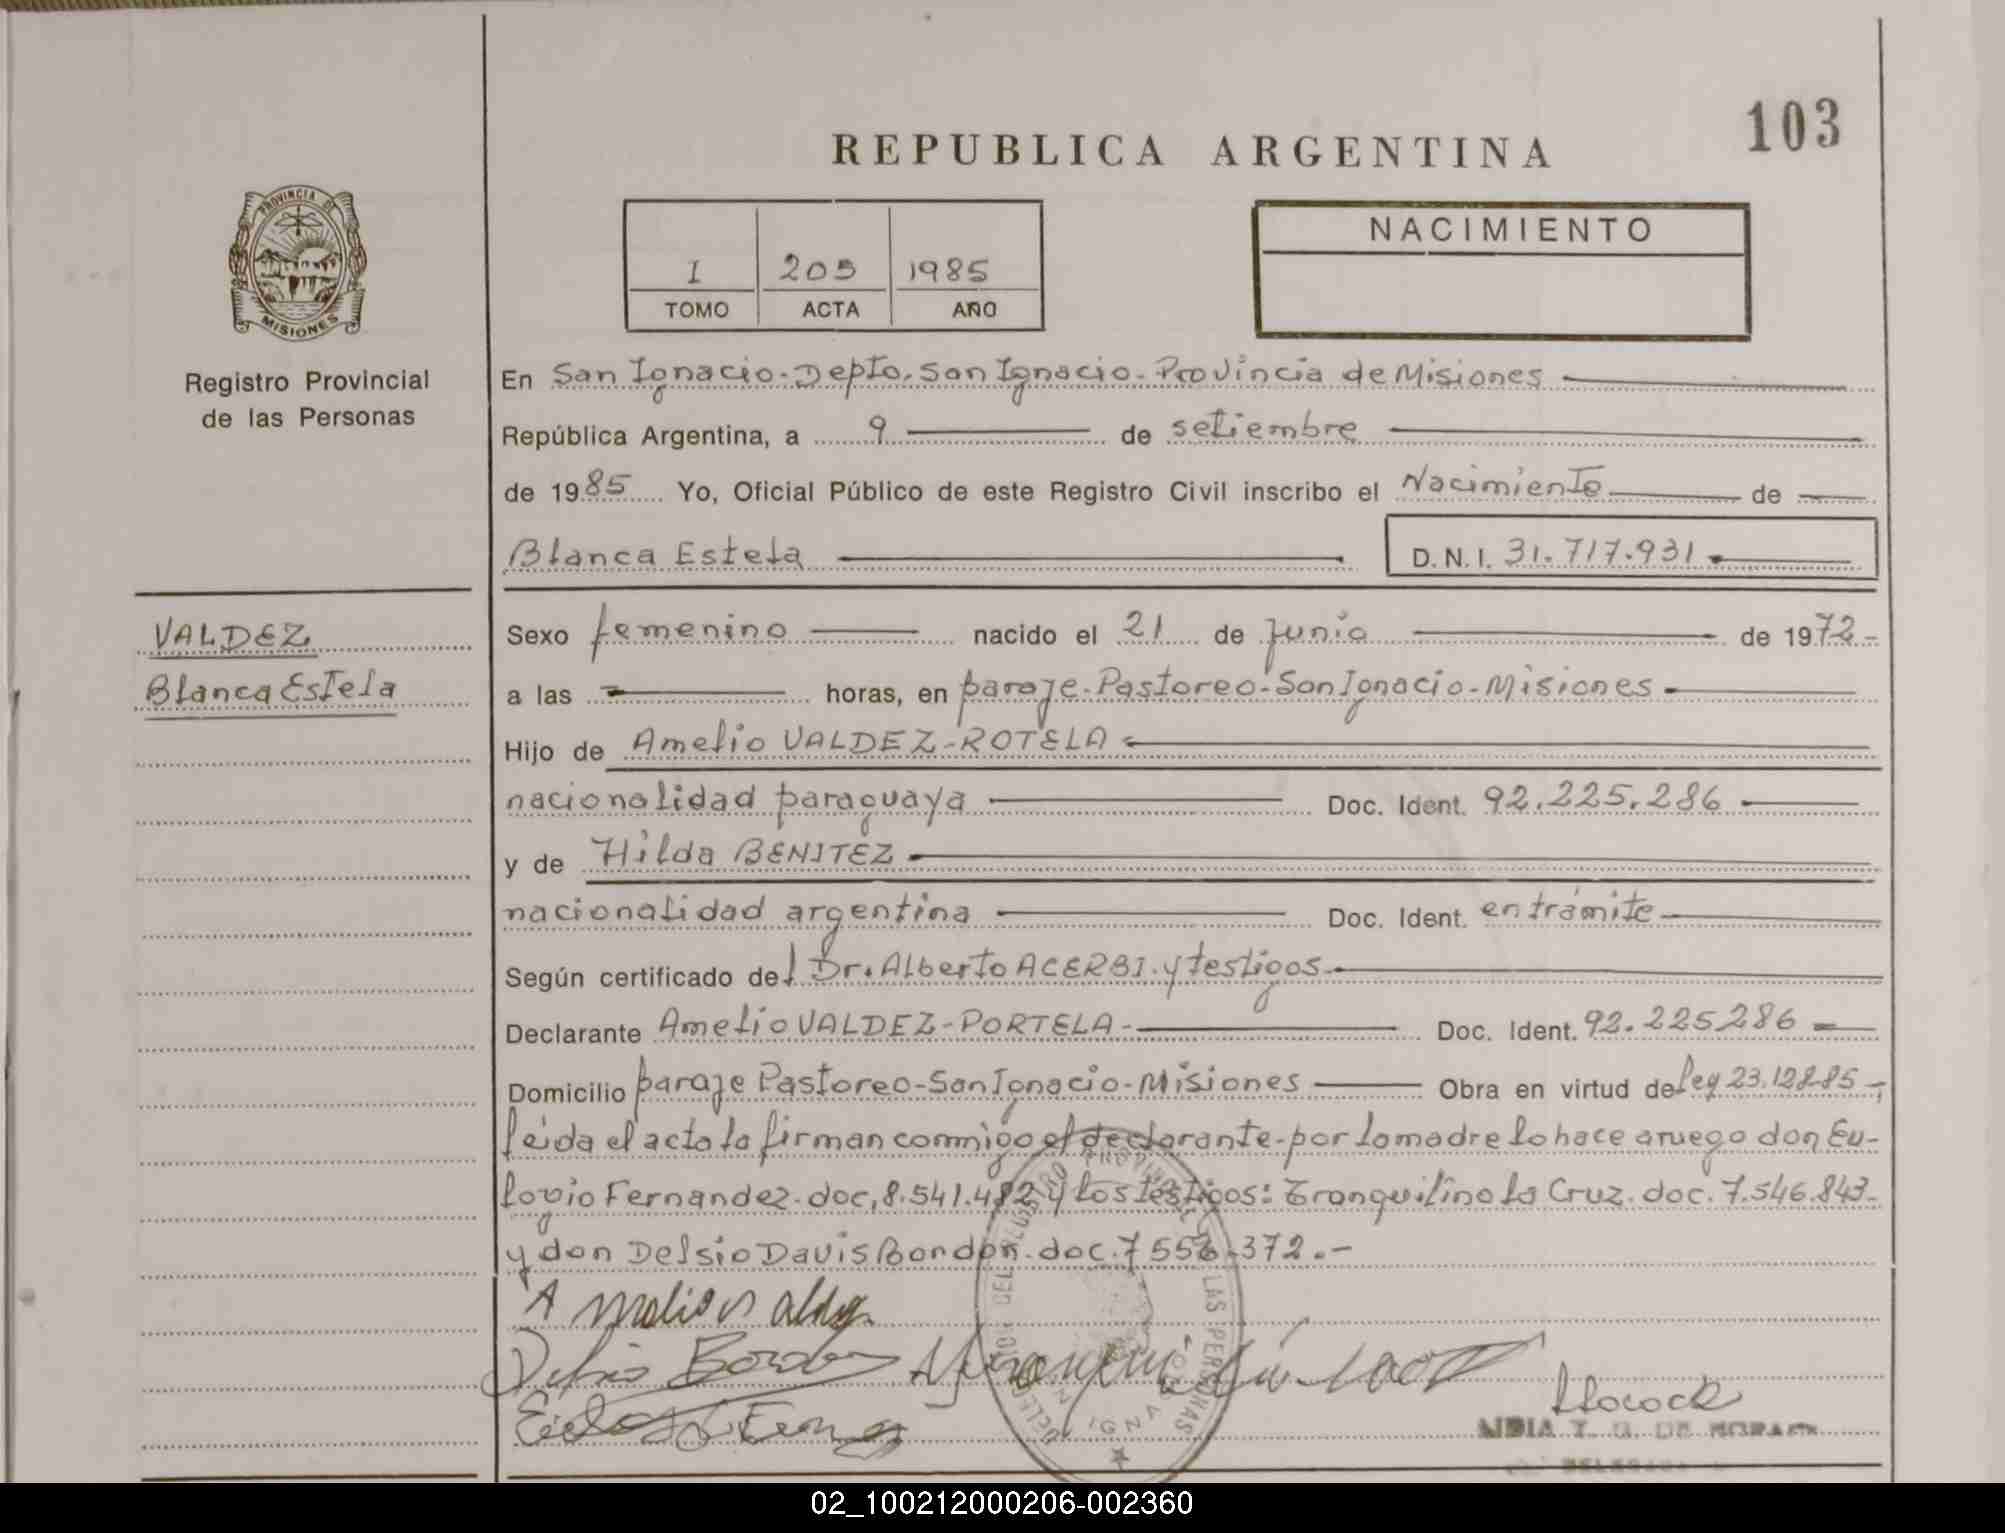 103
REPUBLICA ARGENTINA
PROVINCIA DE
MISIONES
Registro Provincial
de las Personas
I 205 1985
TOMO ACTA AÑO
NACIMIENTO
En San Ignacio-Depto. San Ignacio-Provincia de Misiones
República Argentina, a 9 de setiembre
de 1985 Yo, Oficial Público de este Registro Civil inscribo el Nacimiento de
Blanca Estela D.N.I. 31.717.931
VALDEZ
Blanca Estela
Sexo femenino nacido el 21 de Junio de 1972.-
a las horas, en paraje-Pastoreo-San Ignacio-Misiones
Hijo de Amelio VALDEZ-ROTELA
nacionalidad paraguaya Doc. Ident. 92.225.286
y de Hilda BENITEZ
nacionalidad argentina Doc. Ident. en trámite
Según certificado del Dr. Alberto ACERBI. y testigos
Declarante Amelio VALDEZ-PORTELA- Doc. Ident. 92.225286
Domicilio paraje Pastoreo-San Ignacio-Misiones Obra en virtud de ley 23.128-85-,
leida el acta la firman conmigo el declarante-por la madre lo hace a ruego don Eu-
logio Fernandez. doc, 8.541.482 y los testigos: Tranquilino la Cruz. doc. 7.546.843-
y don Delsio Davis Bordon. doc. 7 556.372.-
Amelio Valdez
Delsio Bordon
DELEGACION DEL REGISTRO PROVINCIAL DE LAS PERSONAS
IGNACIO
02_100212000206-002360